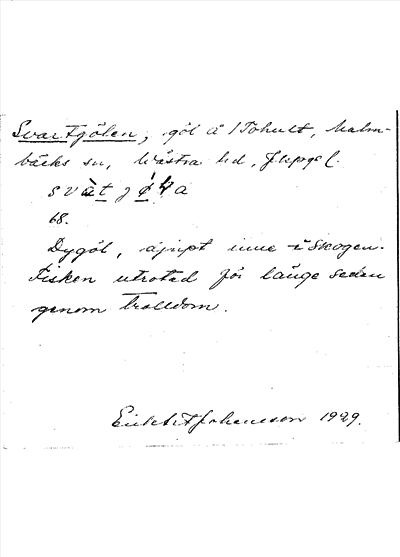 Svartgölen, göl å Tohult, Malm-
bäcks sn, Västra hd,
svàt j
68.
Dygöl, inne i Skogen.
Fisken utrotad för länge sedan
genom trolldom.
Johansson 1929.